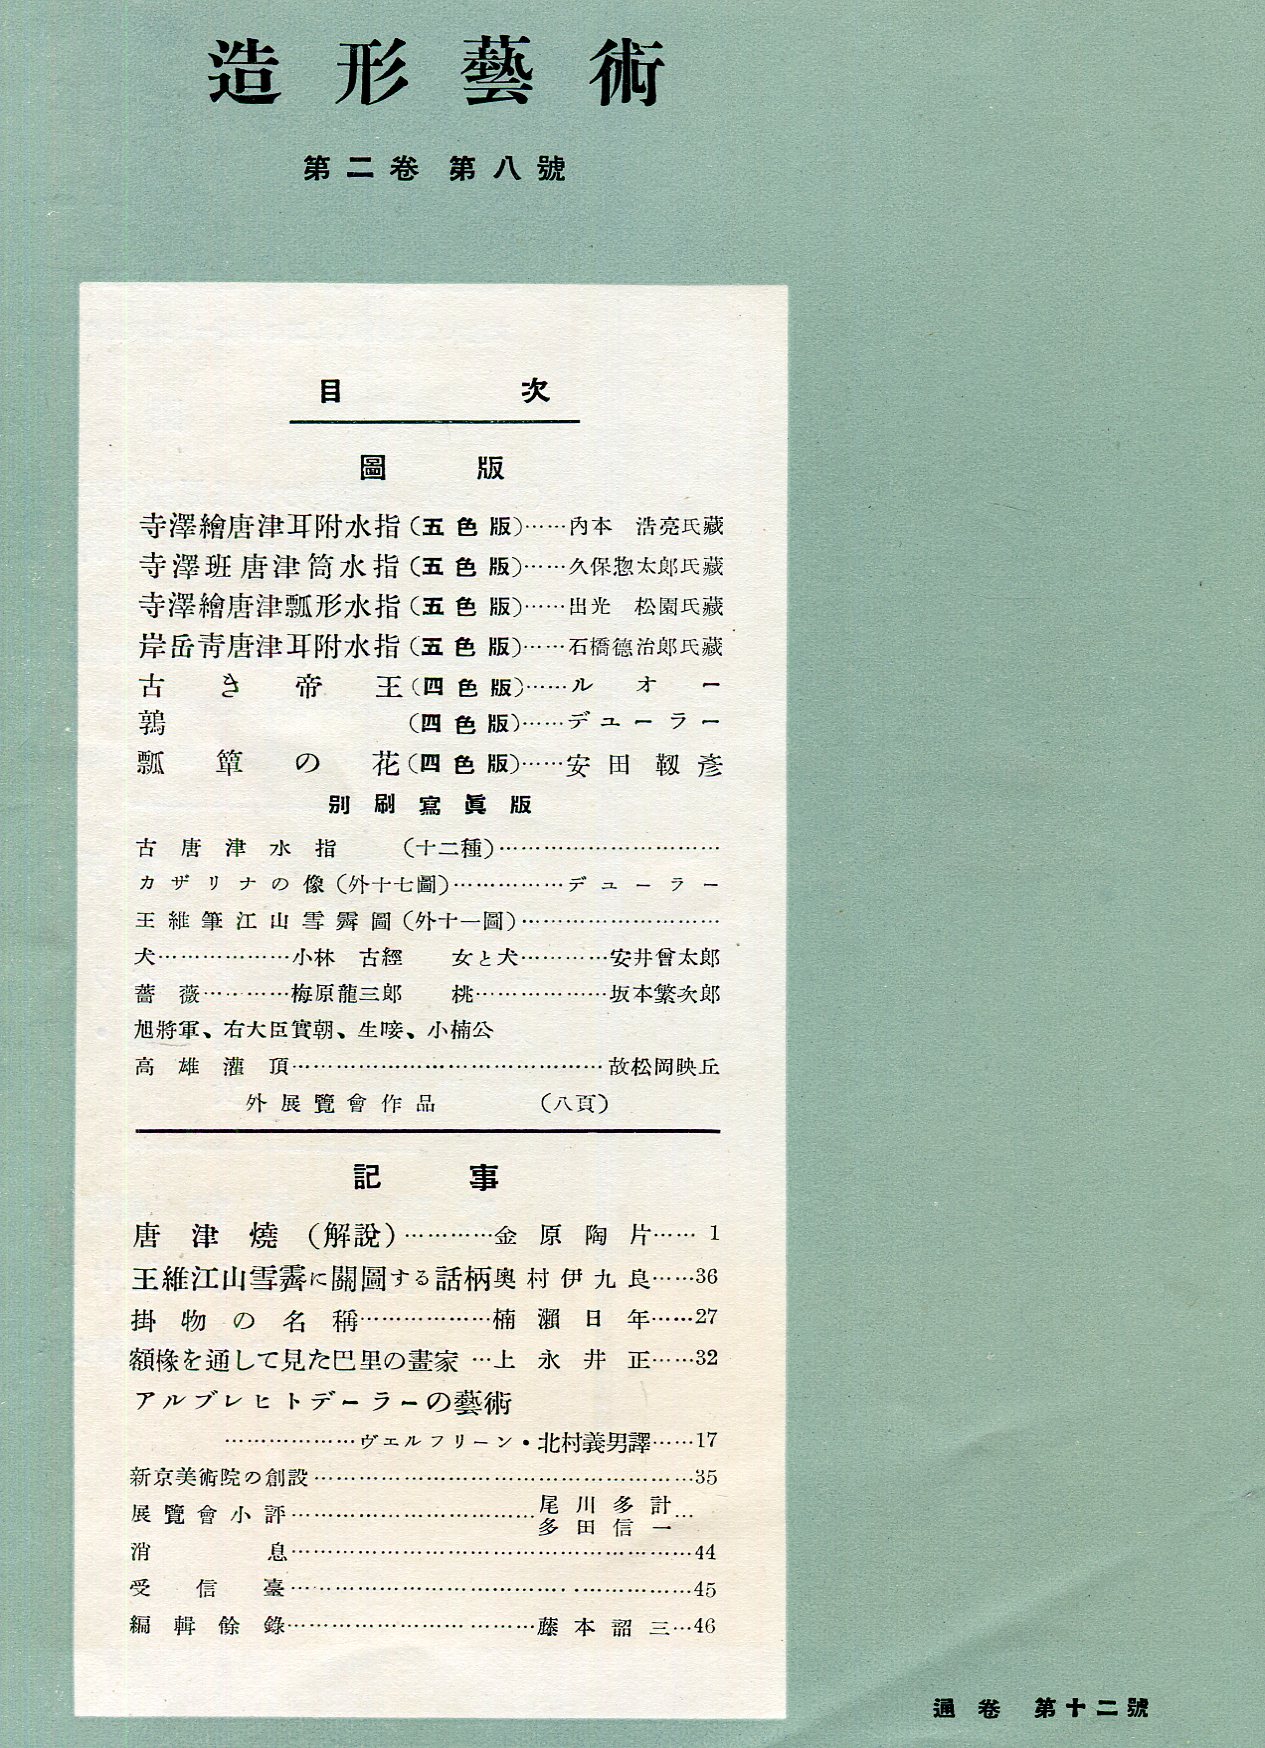 造形藝術
第二卷 第八號
目次
圖版
寺澤繪唐津耳附水指(五色版)……內本 浩亮氏藏
寺澤班唐津筒水指(五色版)……久保惣太郎氏藏
寺澤繪唐津瓢形水指(五色版)……出光 松園氏藏
岸岳靑唐津耳附水指(五色版)……石橋德治郎氏藏
古き帝王(四色版)……ルオー
鶉(四色版)……デューラー
瓢簞の花(四色版)……安田靱彥
別刷寫眞版
古唐津水指 (十二種)…………………………
カザリナの像(外十七圖)……………デューラー
王維筆江山雪霽圖(外十一圖)………………………
犬………………小林 古經 女と犬…………安井曾太郎
薔薇…………梅原龍三郎 桃………………坂本繁次郎
旭將軍、右大臣實朝、生唼、小楠公
高雄灌頂……………………………………故松岡映丘
外展覽會作品 (八頁)
記事
唐津燒(解說)…………金原陶片……1
王維江山雪霽に關圖する話柄奧村伊九良……36
掛物の名稱………………楠瀨日年……27
額椽を通して見た巴里の畫家…上永井正……32
アルブレヒトデーラーの藝術
………………ヴェルフリーン・北村義男譯……17
新京美術院の創設……………………………………………35
展覽會小評……………………………尾川多計
多田信一…
消息………………………………………………44
受信臺………………………………………………45
編輯餘錄……………………………藤本韶三…46
通卷 第十二號